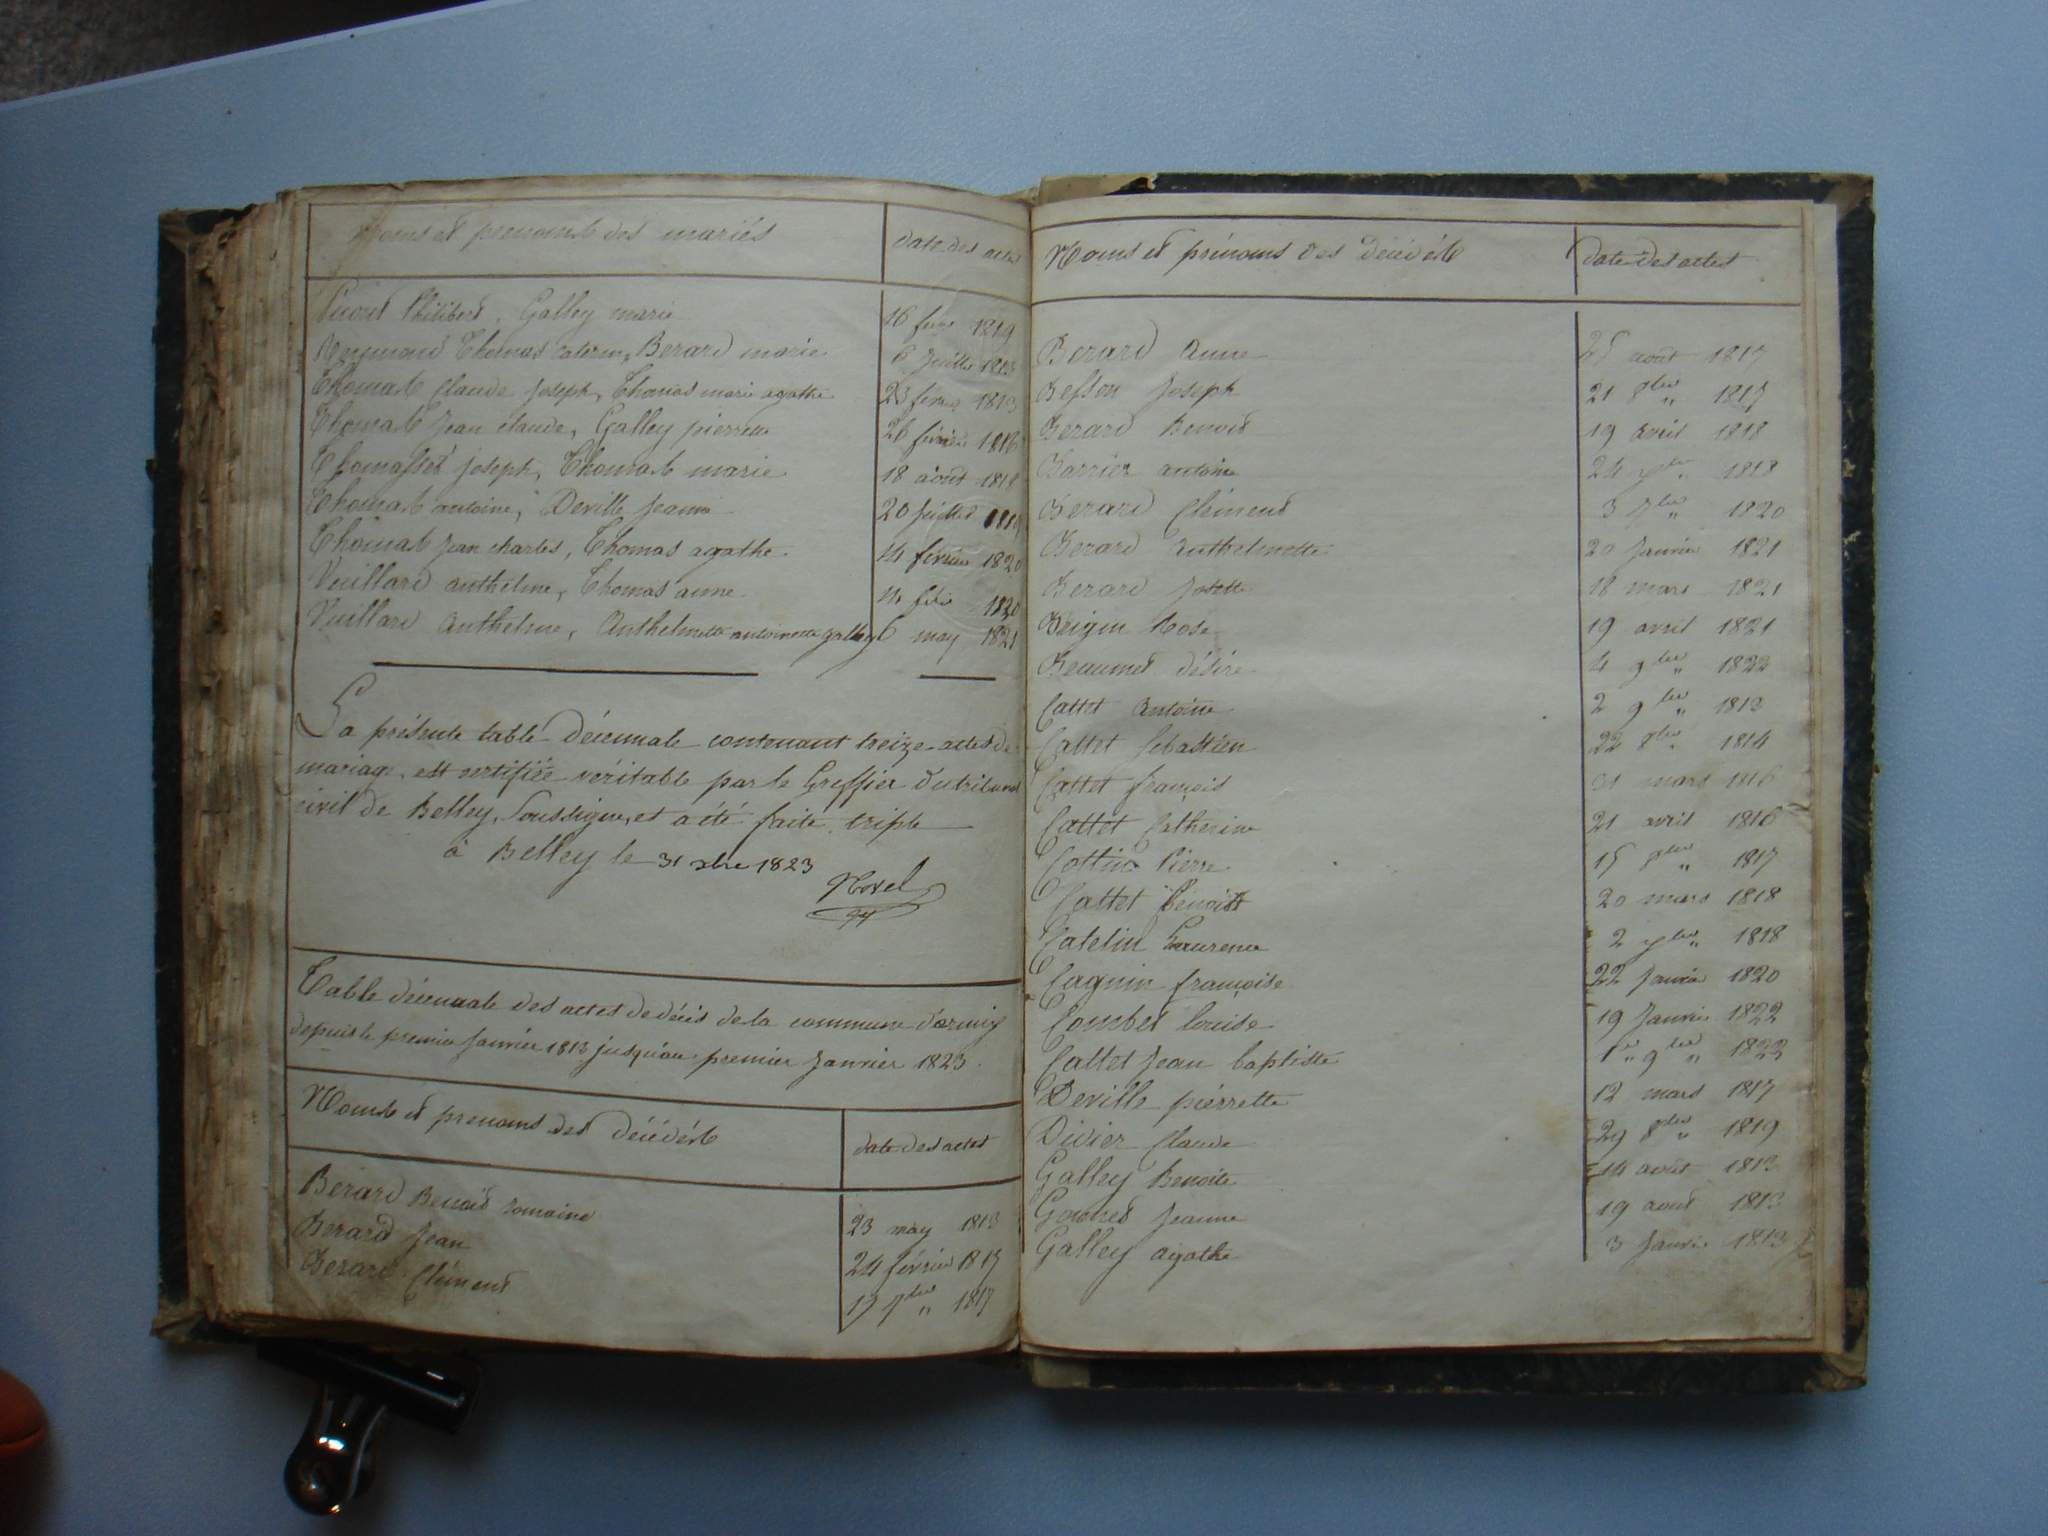 Noms et prenoms des mariés
date des actes
Philibert, Galley marie
16 fevr 1819
Reymond Thomas, Berard marie
6 Juillet 1813
Thomas Claude Joseph, Thomas marie agathe
23 fevrier 1813
Thomas Jean claude, Galley pierrette
26 février 1816
Thomasset joseph, Thomas marie
18 août 1818
Thomas antoine, Deville Jeanne
20 juillet 1819
Thomas Jean charles, Thomas agathe
14 février 1820
Vuillard anthelme, Thomas anne
1820
Vuillard Anthelme, Anthelmette antoinette galley
6 may 1821
La présente table Décennale contenant treize actes de
mariage, est certifiée véritable par le Greffier du tribunal
civil de Belley, Soussigné, et a été faite triple
à Belley le 31 xbre 1823
Morel
Table décennale des actes de décés de la commune d'ormix
depuis le premier Janvier 1813 jusqu'au premier Janvier 1823.
Noms et prenoms des décédés
date des actes
Berard Benoit romaine
23 may 1813
Berard Jean
24 février 1817
Berard Clément
17 7bre 1817
Noms et prénoms des Décédés
date des actes
Berard Anne
25 août 1817
Besson Joseph
21 8bre 1817
Berard Benoit
19 avril 1818
Barrier antoine
24 1818
Berard Clément
3 7bre 1820
Berard Anthelmette
20 Janvier 1821
Berard Josette
18 mars 1821
Beigin Rose
19 avril 1821
Beaumet désiré
4 9bre 1822
Cattet Antoine
2 9bre 1813
Cattet Sébastien
22 8bre 1814
Cattet françois
31 mars 1816
Cattet Catherine
21 avril 1816
Cottin Pierre
15 9bre 1817
Cattet Benoist
20 mars 1818
Catelin Laurence
2 1818
Cagnin françoise
22 Janvier 1820
Combet louise
19 Janvier 1822
Cattet Jean baptiste
1er 9bre 1822
Deville pierrette
12 mars 1817
Divier Claude
29 8bre 1819
Galley Benoite
14 août 1813
Gonnet Jeanne
19 août 1813
Galley agathe
3 Janvier 1813